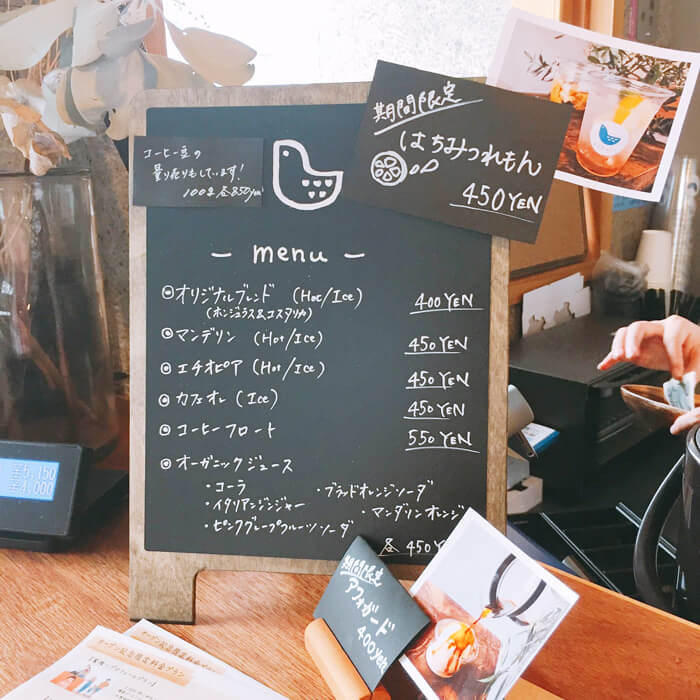 コーヒー豆の
量り売りもしています!
100g 各850yen
期間限定
はちみつれもん
450YEN
- menu -
オリジナルブレンド (Hot/Ice) 400YEN
(ホンジュラス&コスタリカ)
マンデリン (Hot/Ice) 450YEN
エチオピア (Hot/Ice) 450YEN
カフェオレ (Ice) 450YEN
コーヒーフロート 550YEN
オーガニックジュース
・コーラ ・ブラッドオレンジソーダ
・イタリアンジンジャー ・マンダリンオレンジ
・ピンクグレープフルーツソーダ
各 450Y
期間限定
アフォガード
400yen
¥5,150
¥4,000
オープン記念限定料金プラン
オープン記念限定料金プラン